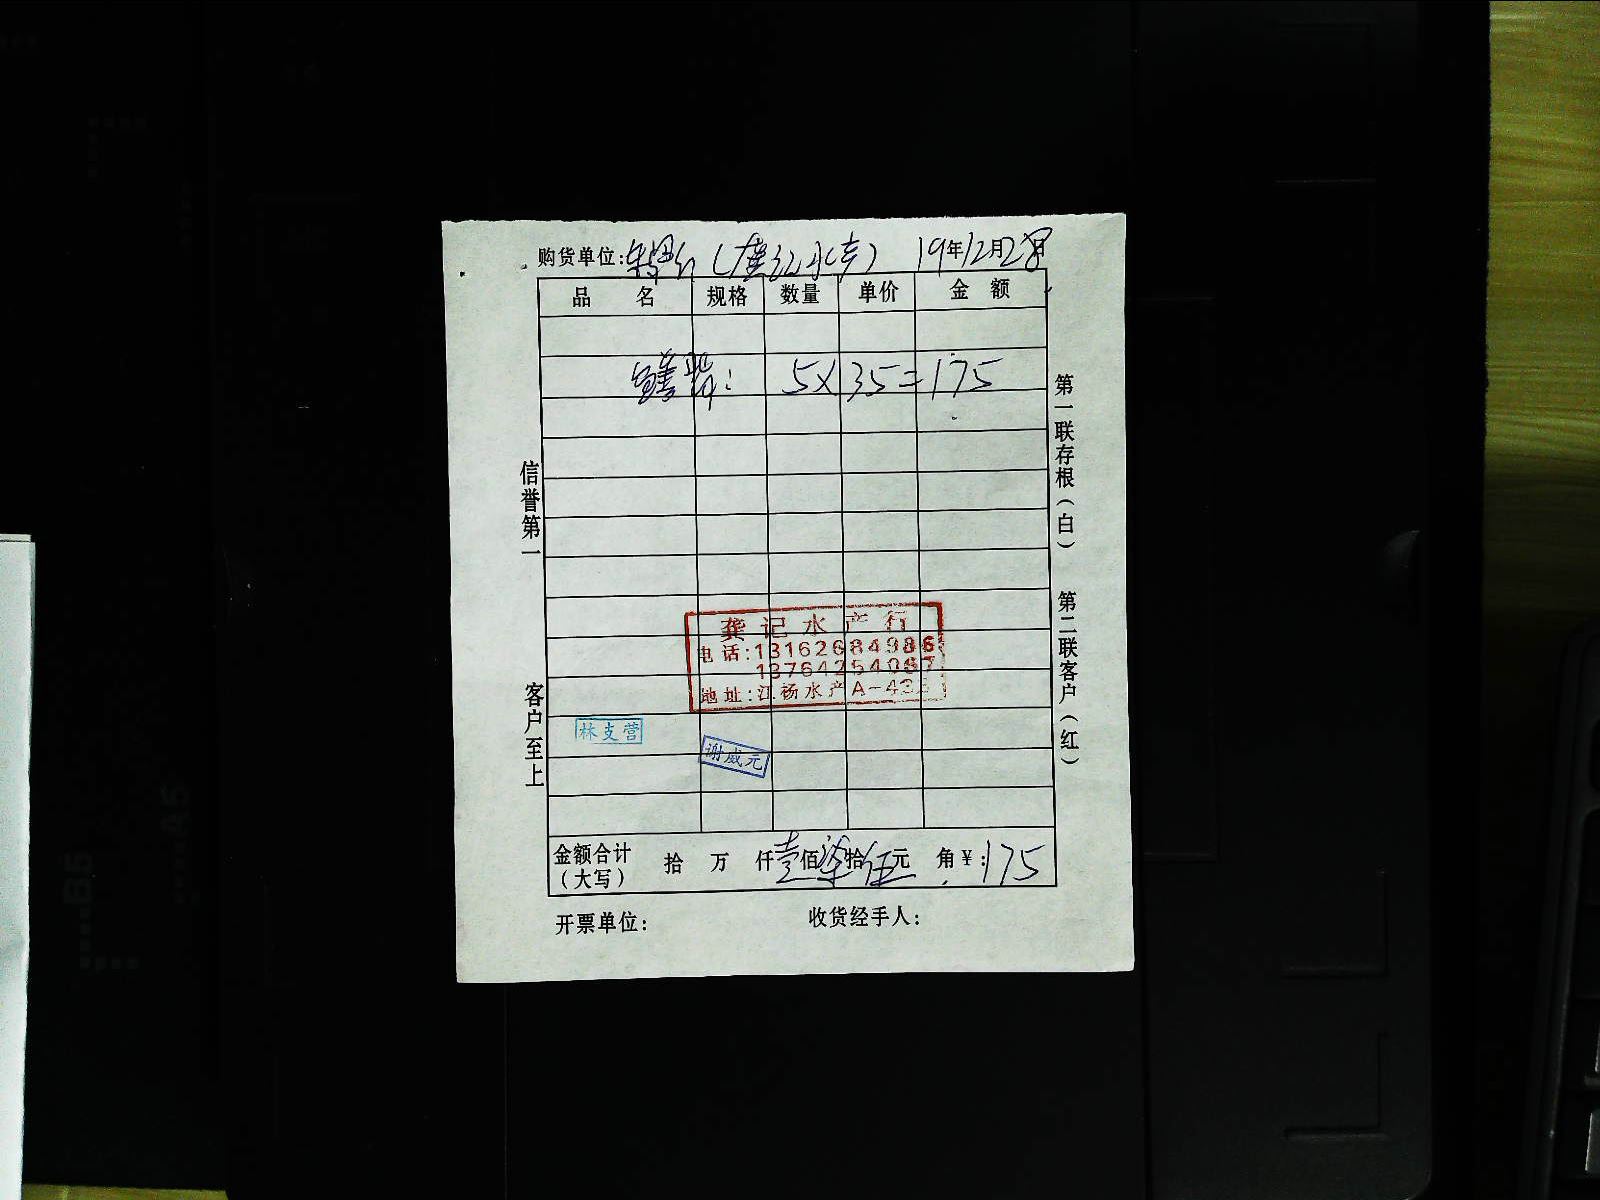 购货单位: (龚记水产) 19年12月28日
品 名 规格 数量 单价 金 额
5×35=175
信誉第一
客户至上
第一联存根(白)
第二联客户(红)
龚记水产行
电话:13162684986
13764254067
地址:江杨水产A-43
林支营
谢威元
金额合计(大写) 拾 万 仟壹佰柒拾伍元 角¥:175
开票单位: 收货经手人: